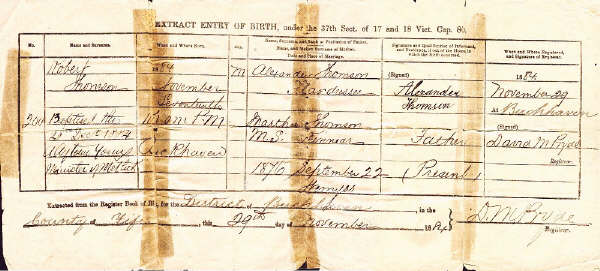 EXTRACT ENTRY OF BIRTH, under the 37th Sect. of 17 and 18 Vict. Cap. 80.
No.
Name and Surname.
When and Where Born.
Sex.
Name, Surname, and Rank or Profession of Father.
Name, and Maiden Surname of Mother.
Date and Place of Marriage.
Signature and Qualification of Informant, and Residence, if out of the House in which the Birth occurred.
When and Where Registered, and Signature of Registrar.
Robert
Thomson
Baptised
Minister of
1884
November
Seventeenth
M
Buckhaven
Alexander Thomson
Hairdresser
Martha Thomson
M.S.
1876 September 22
(Signed)
Alexander
Thomson
Father
(Present)
1884
November 29
At Buckhaven
(Signed)
David McPryde
Registrar.
Extracted from the Register Book of Births, for the District of Buckhaven in the
County of Fife, this 29th day of November 1884
D. McPryde
Registrar.